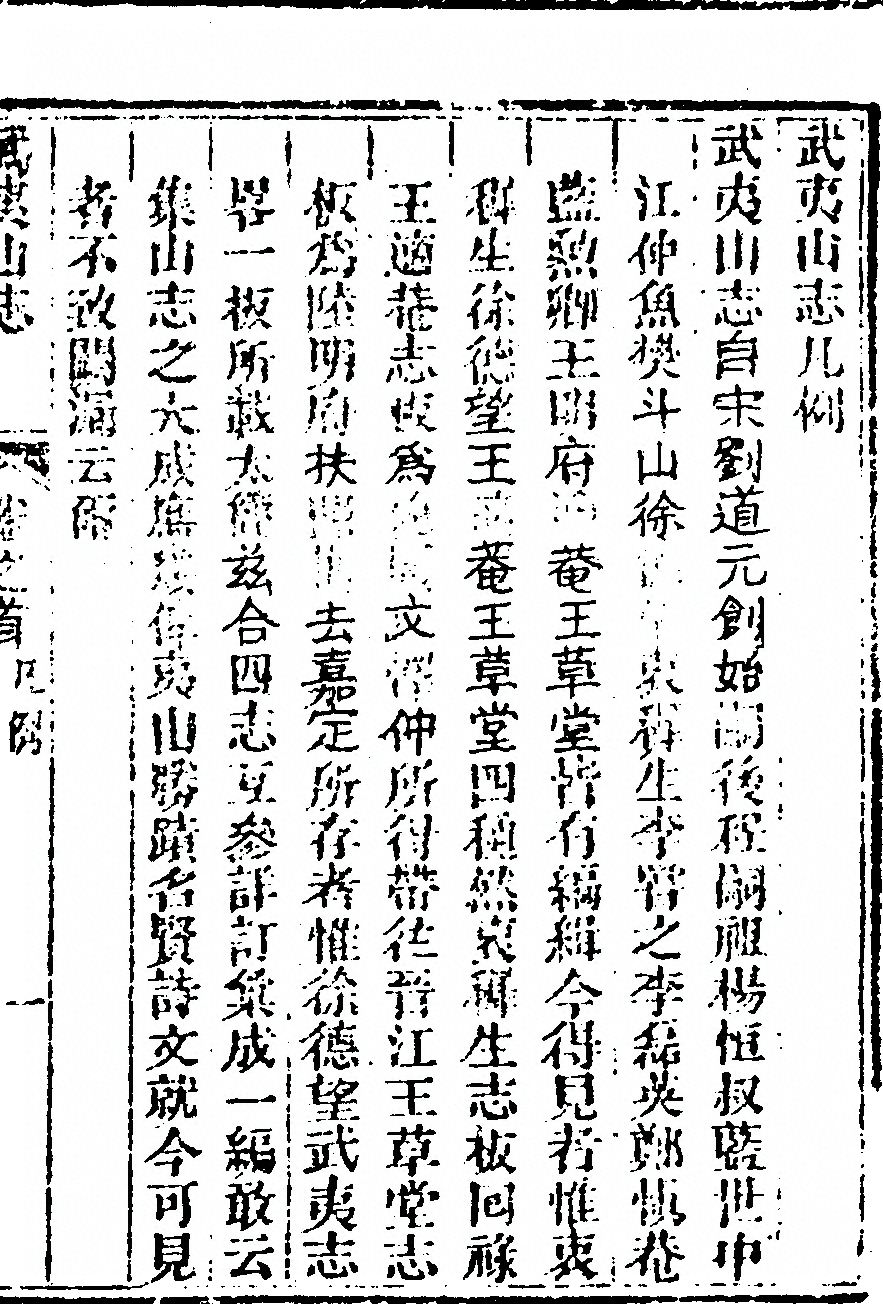 武夷山志凡例
武夷山志自宋劉道元創始嗣後程嗣祖楊恒叔藍世中
江仲魚樊斗山徐衷穉生李習之李磊英鄭慎菴
藍勲卿王明府菴王草堂皆有編緝今得見者惟衷
穉生徐德望王菴王草堂四種然衷穉生志板回祿
王適菴志板為文仲所得帶往晉江王草堂志
板為陸明府扶去嘉定所存者惟徐德望武夷志
畧一板所載太簡兹合四志互參詳訂彙成一編敢云
集山志之大成庶幾俾夷山勝蹟名賢詩文就今可見
者不致闕漏云爾
武夷山志
卷之首 凡例
一